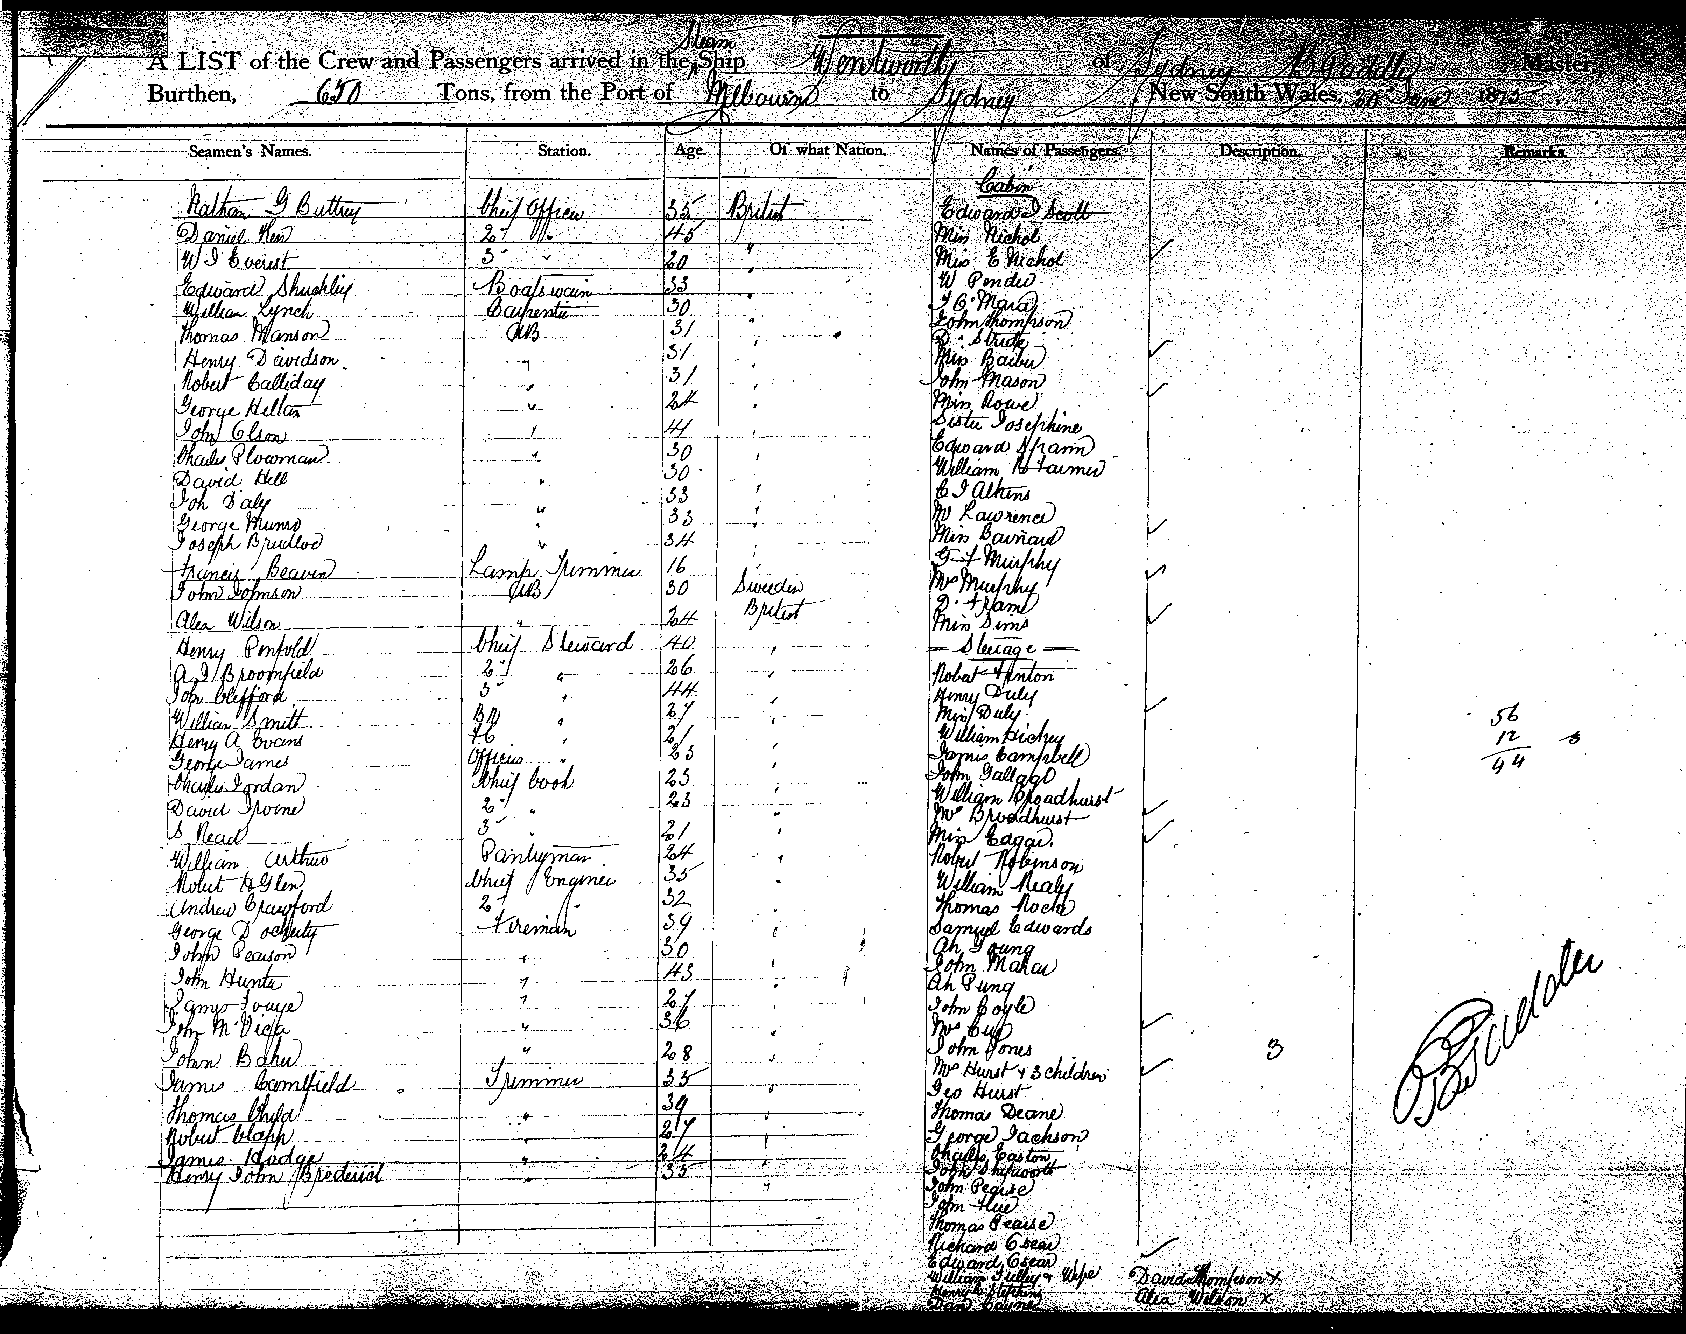 A LIST of the Crew and Passengers arrived in the Steam Ship Wentworth of Sydney Master,
Burthen, 650 Tons, from the Port of Melbourne to Sydney New South Wales, 187
Seamen's Names. Station. Age. Of what Nation. Names of Passengers. Description. Remarks.
Cabin
Nathan G Buttrey Chief Officer 35 British Edward J Scott
Daniel Kerr 2nd Off. 45 " Miss Nichol
W J Everest 3 " 20 " Miss E Nichol
Edward Shughley Boatswain 33 " W Pender
William Lynch Carpenter 30 "
Thomas Manson AB 31 " John Thompson
Henry Davidson " 31 " D. Stride
Robert Calliday " 31 " Miss Barber
George Hellar " 24 " John Mason
John Olson " 41 " Miss Rowe
Charles Plowman " 30 " Sister Josephine
David Hill " 30 " Edward Spann
Joh Daly " 33 " William B Farmer
George Munro " 33 " C J Atkins
Joseph " 34 " Mr Lawrence
Miss Barnard
Francis Beaven Lamp Trimmer 16 " G F Murphy
John Johnson AB 30 Sweden Mrs Murphy
Alex Wilson " 24 British D. Frame
Miss Sims
Henry Penfold Chief Steward 40 " Steerage
A J Broomfield 2 " 26 " Robert Hinton
Joh Clifford 3 " 44 " Henry Duly
William Smith BR " 27 " Miss Duly 56
Henry A Evans FC " 21 " William Hickey 12
George James Officers " 23 " James Campbell 44
Charles Jordan Chief Cook 23 " John Gallagh
David Irvine 2 " 23 " William Broadhurst
S Read 3 " 21 " Mrs Broadhurst
William Arthur Pantryman 24 " Miss Eagar
Robert H Glen Chief Engineer 35 " Robert Robinson
Andrew Crawford 2 " 32 " William Nealy
George Docherty Fireman 39 " Thomas Roche
John Pearson " 30 " Samuel Edwards
John Hunter " 43 " Ah Young
James " 27 " John Mahar
John McVicar " 36 " Ah Pung
John Baker " 28 " John Coyle
James Camlfield Trimmer 35 " Mrs
Thomas Child " 39 " John Jones 3
Robert Clapp " 27 " Mrs Hurst & 3 children
James Hodge " 24 " Geo Hurst
Henry John " 35 " Thomas Deane
George Jackson
Charles Easton
John Shipworth
John Pearse
John Hue
Thomas Pearse
Richard Esear
Edward Esear
William Tulley & Wife David Thompson x
Alex Weldon x